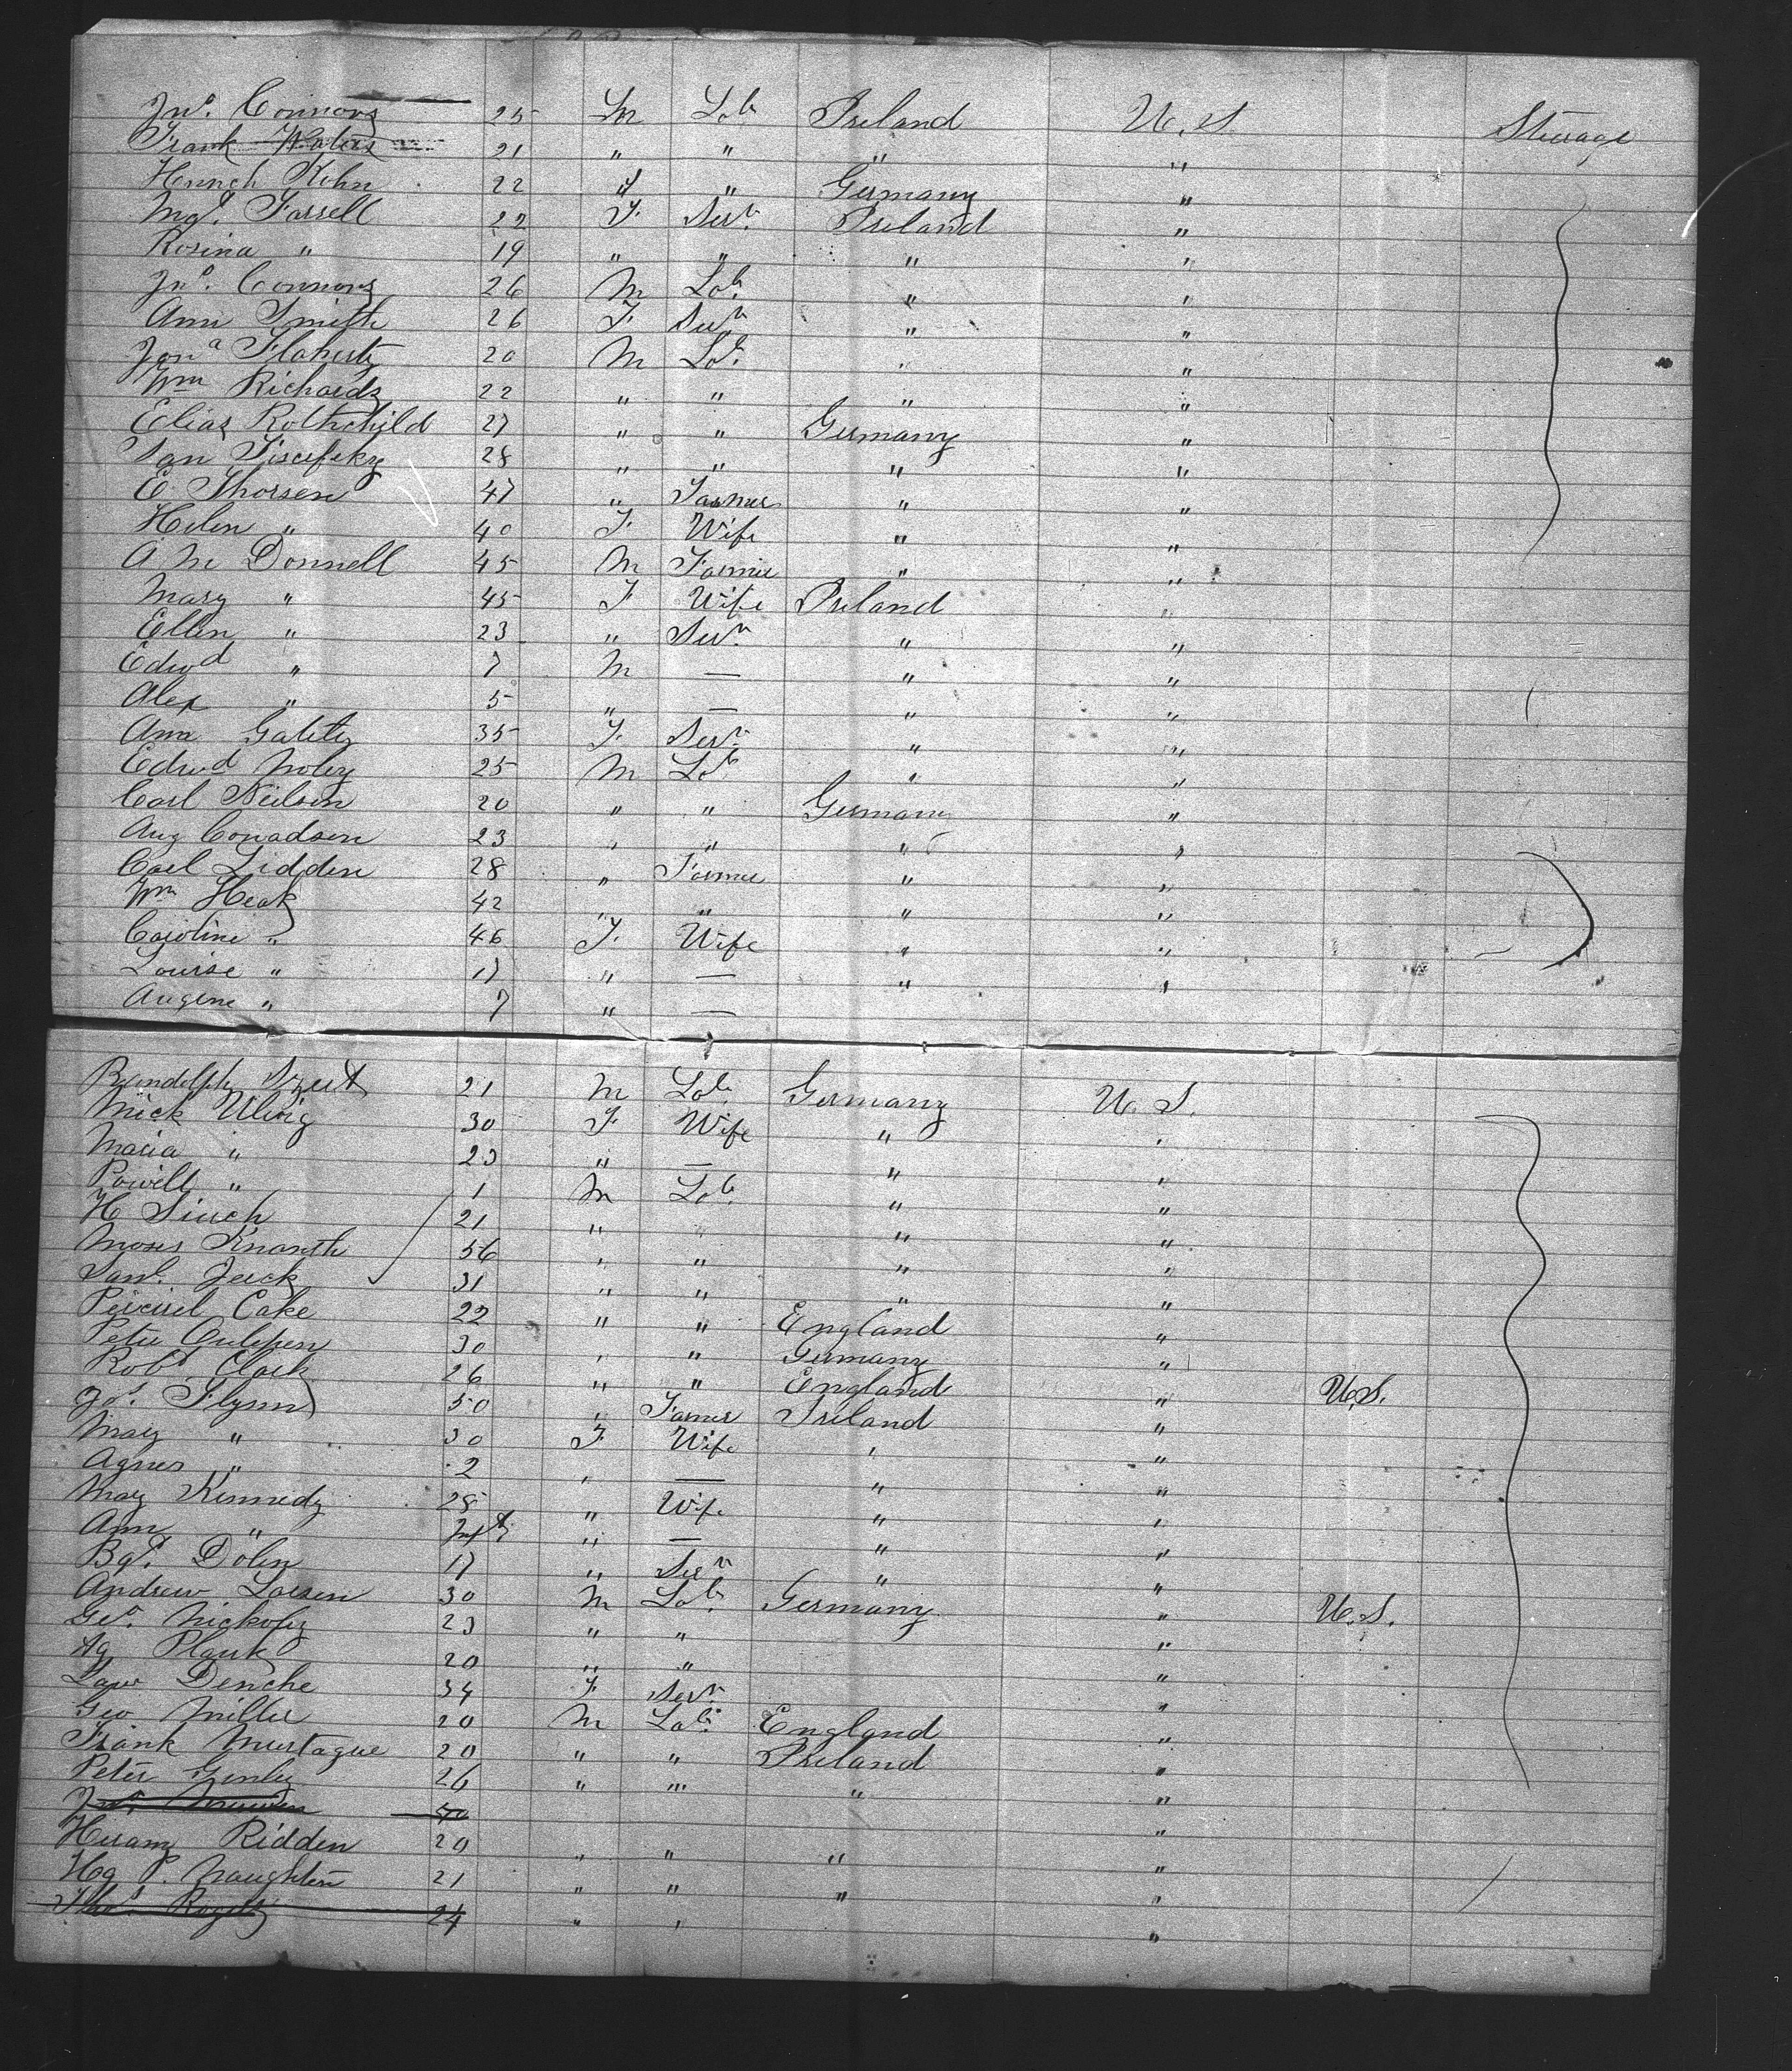 Jno. Connors 25 M Lab Ireland U.S. Steerage
Frank Waters 21 " " " "
Henrich Kohn 22 " " Germany "
Mgt. Farrell 22 F Serv. Ireland "
Rosina " 19 " " " "
Jno. Connors 26 M Lab. " "
Ann Smith 26 F Serv " "
Jona Flaherty 20 M Lab. " "
Wm Richards 22 " " " "
Elias Rothchild 27 " " Germany "
28 " " " "
E. Thorsen 47 " Farmer " "
Helen " 40 F Wife " "
A Mc Donnell 45 M Farmer " "
Mary " 45 F Wife Ireland "
Ellen " 23 " Serv. " "
Edwd " 7 M — " "
Alex " 5 " — " "
Ann 35 F Serv. " "
Edwd 25 M Lab " "
Carl Neilson 20 " " Germany "
Aug Conadsen 23 " " " "
Carl Lidden 28 " Farmer " "
Wm Heak 42 " " " "
Caroline " 46 F Wife " "
Louise " 17 " — " "
Augene " 7 " —
Randolph 21 M Lab. Germany U.S.
Mick Uling 30 F Wife " "
Maria " 23 " — " "
Powell " 1 M Lab. " "
H 21 " " " "
Moses 56 " " " "
Saml. Jack 31 " " " "
Cake 22 " " England "
Peter 30 " " Germany "
Robt. Clark 26 " " England " U.S.
Jos. Flynn 50 " Farmer Ireland "
Mary " 30 F Wife " "
Agnes " 2 " — " "
Mary Kennedy 28 " Wife " "
Ann " " — " "
Bgt. Dolen 17 " Serv " "
Andrew Larsen 30 M Lab. Germany " U.S.
Geo. 23 " " "
Ag Plank 20 " " "
Law Denche 34 F Serv. "
Geo Miller 20 M Lab. England "
Frank Murtague 20 " " Ireland "
Peter Ginley 26 " " " "
40 "
Ridden 20 " " " "
Hg P. Naughten 21 " " " "
Thos. 24 " " "